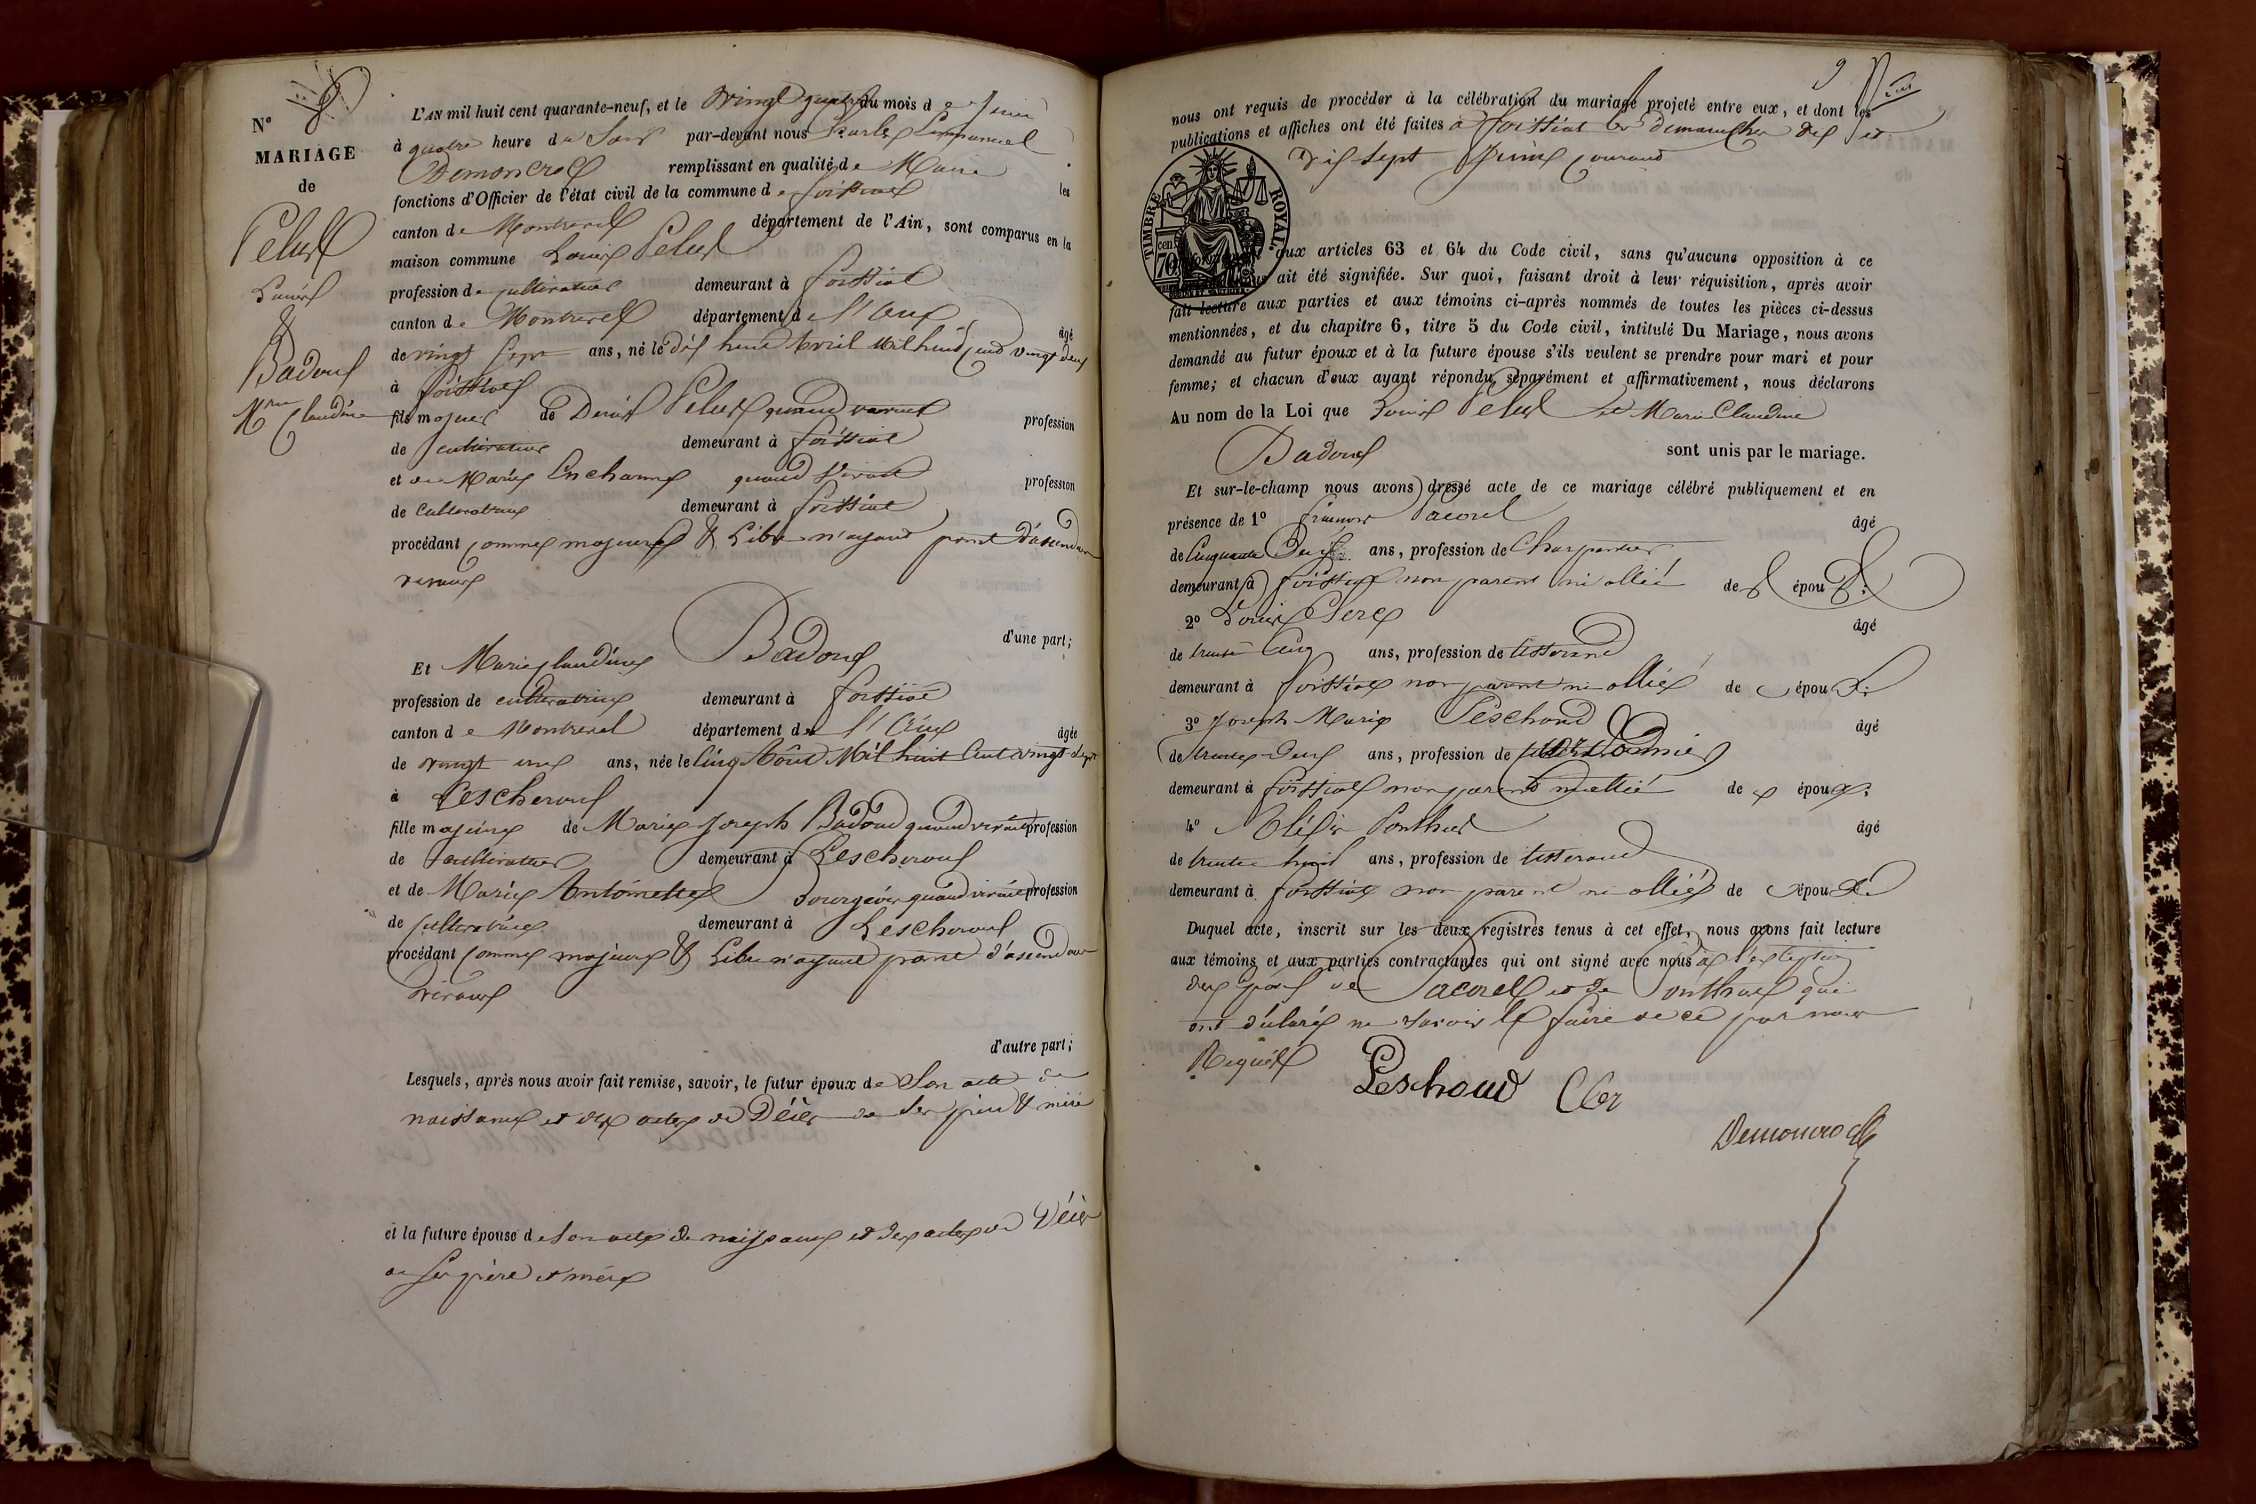 N° 8
MARIAGE
de
Pelux
Louis
&
Badoux
Mrie Claudine
L'AN mil huit cent quarante-neuf, et le vingt quatre du mois de Juin
à quatre heure du Soir par-devant nous Charles Emmanuel
remplissant en qualité de Maire les
fonctions d'Officier de l'état civil de la commune de foissiat
canton de Montrevel département de l'Ain, sont comparus en la
maison commune Louis Pelux
profession de cultivateur demeurant à foissiat
canton de Montrevel département de l'Ain âgé
de vingt Sept ans, né le dix huit Avril Mil huit cent vingt deux
à foissiat
fils majeur de Denis Pelux quand vivant profession
de cultivateur demeurant à foissiat
et de Marie quand vivait profession
de Cultivatrice demeurant à foissiat
procédant comme majeur & Libre n'ayant point d'ascendant
vivant
d'une part;
Et Marie Claudine Badoux
profession de cultivatrice demeurant à foissiat
canton de Montrevel département de l'Ain âgée
de vingt un ans, née le Cinq Août Mil huit Cent vingt Sept
à Lescheroux
fille majeure de Marie Joseph Badoux quand vivait profession
de cultivateur demeurant à Lescheroux
et de Marie Antoinette quand vivait profession
de cultivatrice demeurant à Lescheroux
procédant comme majeure & Libre n'ayant point d'ascendant
vivant
d'autre part;
Lesquels, après nous avoir fait remise, savoir, le futur époux de Son acte de
naissance et des actes de Décès de Ses père & mère
et la future épouse de Son acte de naissance et des actes de Décès
de Ses père et mère
9
nous ont requis de procéder à la célébration du mariage projeté entre eux, et dont les
publications et affiches ont été faites à foissiat les dimanches dix et
dix Sept Juin courant
TIMBRE ROYAL.
70 cen
aux articles 63 et 64 du Code civil, sans qu'aucune opposition à ce
ait été signifiée. Sur quoi, faisant droit à leur réquisition, après avoir
fait lecture aux parties et aux témoins ci-après nommés de toutes les pièces ci-dessus
mentionnées, et du chapitre 6, titre 5 du Code civil, intitulé Du Mariage, nous avons
demandé au futur époux et à la future épouse s'ils veulent se prendre pour mari et pour
femme; et chacun d'eux ayant répondu séparément et affirmativement, nous déclarons
Au nom de la Loi que Louis Pelux et Marie Claudine
Badoux sont unis par le mariage.
Et sur-le-champ nous avons dressé acte de ce mariage célébré publiquement et en
présence de 1° Pacoret âgé
de Cinquante Deux ans, profession de Charpentier
demeurant à foissiat non parent ni allié des époux
2° Louis Clerc âgé
de trente Cinq ans, profession de tisserand
demeurant à foissiat non parent ni allié de époux
3° Joseph Marie Peschoud âgé
de trente Deux ans, profession de Cordonnier
demeurant à foissiat non parent ni allié de époux
4° Ponthus âgé
de trente huit ans, profession de tisserand
demeurant à foissiat non parent ni allié de époux
Duquel acte, inscrit sur les deux registres tenus à cet effet, nous avons fait lecture
aux témoins et aux parties contractantes qui ont signé avec nous à l'exception
des époux de Pacoret et de Ponthus qui
ont déclaré ne savoir le faire de ce par nous
Requis
Peschoud Cler